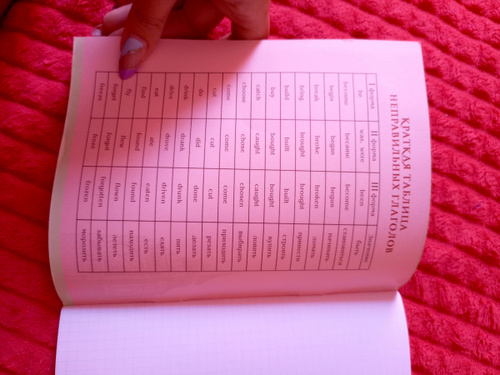 КРАТКАЯ ТАБЛИЦА
НЕПРАВИЛЬНЫХ ГЛАГОЛОВ
I форма II форма III форма
be was, were been быть
become became become становиться
begin began begun начинать
break broke broken ломать
bring brought brought принести
build built built строить
buy bought bought купить
catch caught caught ловить
choose chose chosen выбирать
come came come приходить
cut cut cut резать
do did done делать
drink drank drunk пить
drive drove driven ехать
eat ate eaten есть
find found found находить
fly flew flown лететь
forget forgot forgotten забывать
freeze froze frozen морозить